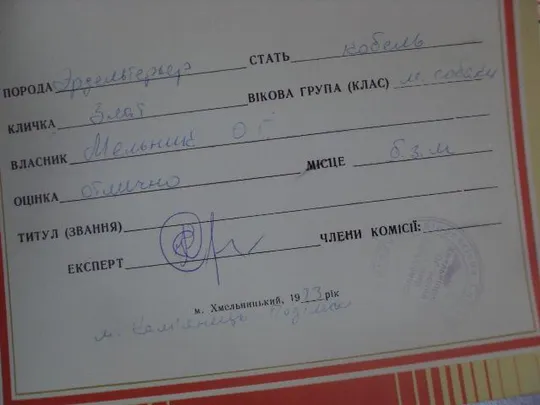 ПОРОДА Эрдельтерьер СТАТЬ кобель
КЛИЧКА Злат ВІКОВА ГРУПА (КЛАС) м. собаки
ВЛАСНИК Мельник О Г
ОЦІНКА отлично МІСЦЕ б.з.м
ТИТУЛ (ЗВАННЯ)
ЕКСПЕРТ ЧЛЕНИ КОМІСІЇ:
м. Хмельницький, 1993 рік
м. Кам'янець Поділь